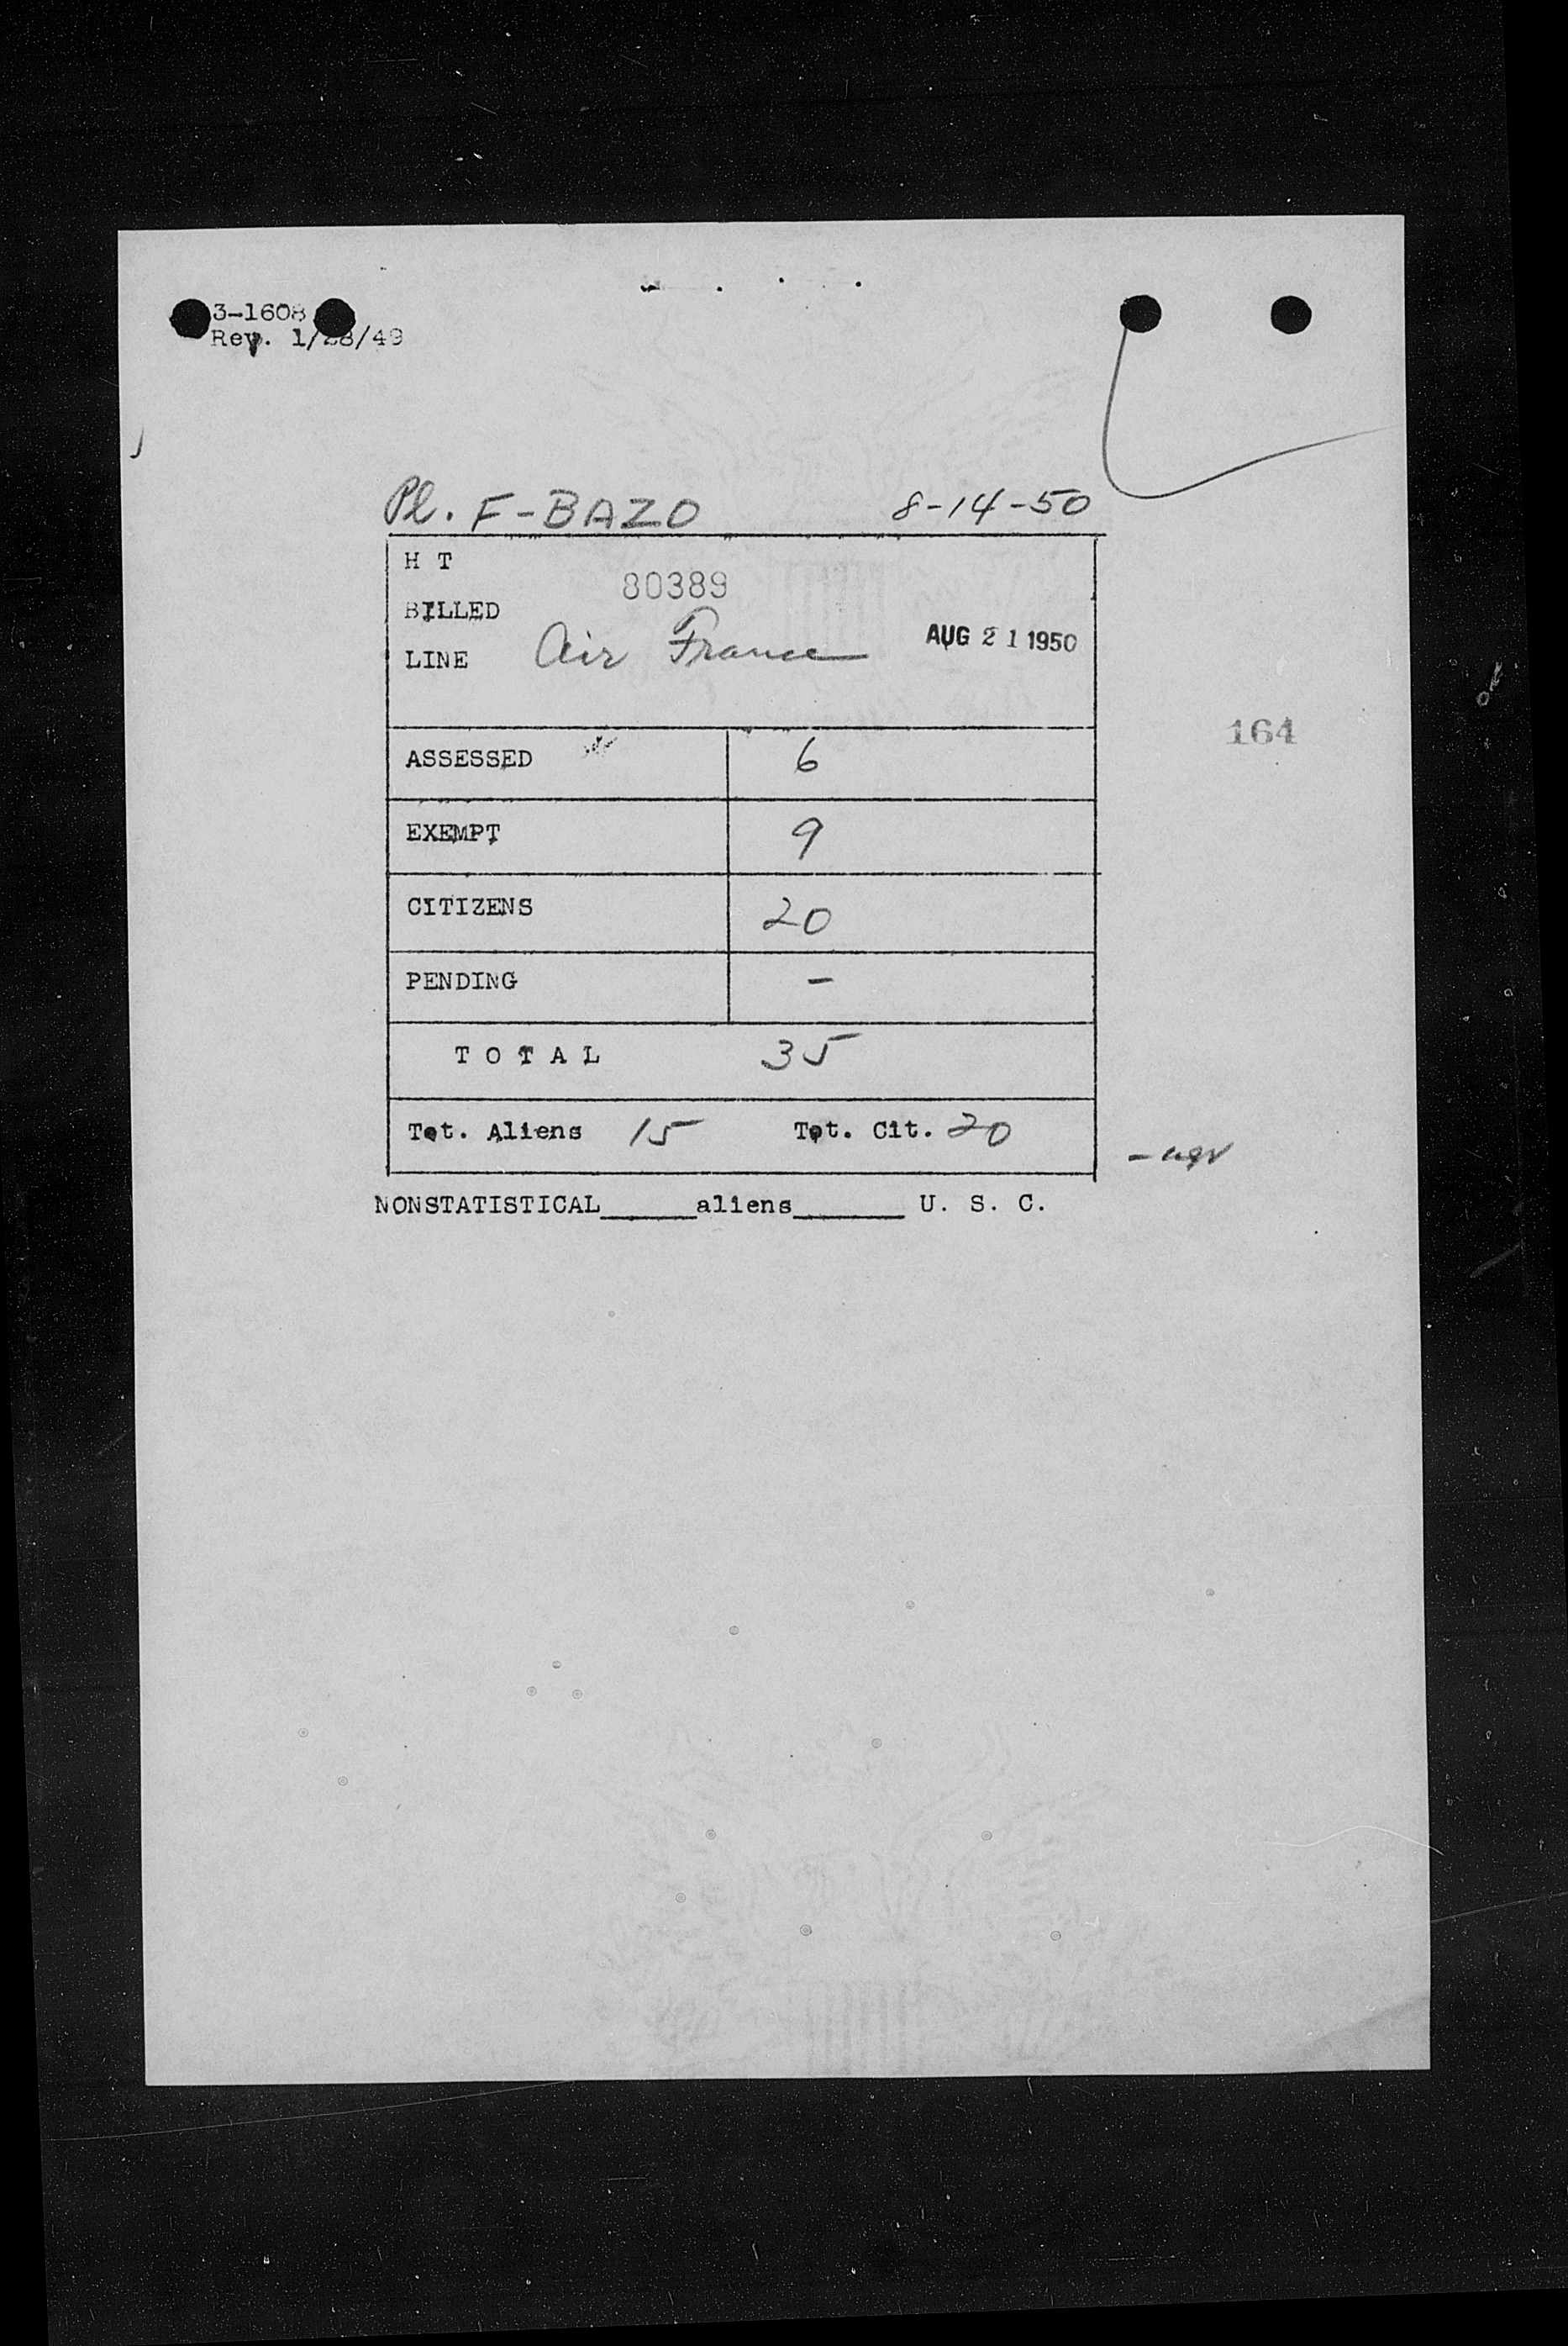 3-1608
Rev. 1/28/49
Pl. F-BAZO 8-14-50
H T
80389
BILLED
LINE Air France AUG 21 1950
164
ASSESSED 6
EXEMPT 9
CITIZENS 20
PENDING -
T O T A L 35
Tot. Aliens 15 Tot. Cit. 20
NONSTATISTICAL______aliens_______ U. S. C.